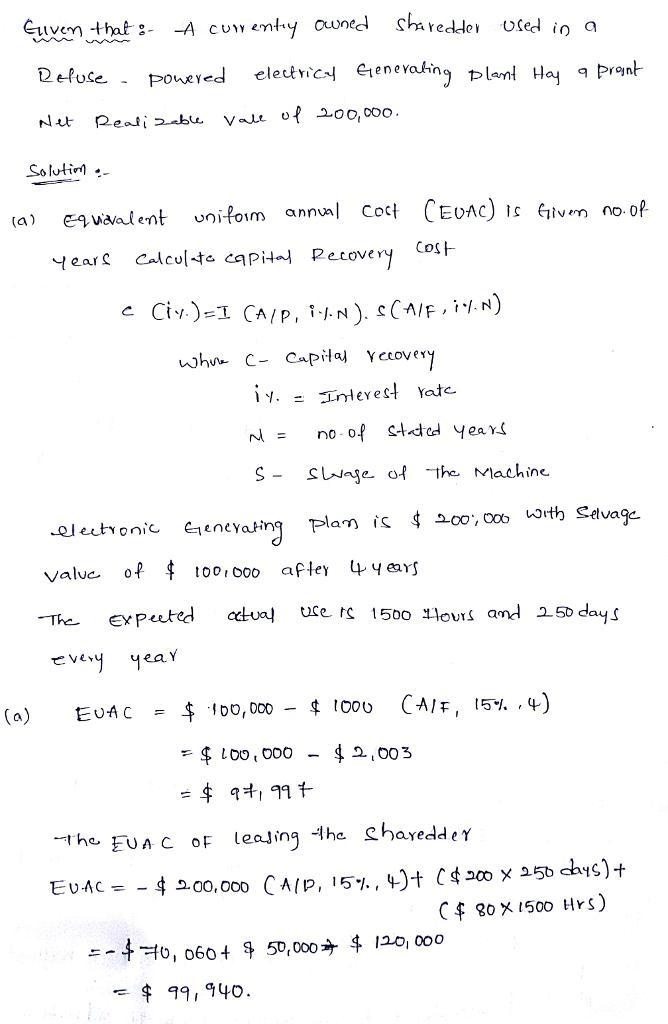 Given that :- A currently owned sharedder used in a
Refuse - powered electrical Generating plant Hay a prsnt
Net Realizable vale of 200,000.
Solution :-
(a) Equivalent uniform annual cost (EUAC) is Given no.of
years calculate capital Recovery cost
c (i%)=I (A/P, i%.N). S(A/F, i%.N)
where C- capital recovery
i%. = Interest rate
N = no.of stated years
S - Slwage of The Machine
electronic Generating plan is $ 200,000 with Selvage
value of $ 100,000 after 4 years
The expected actual use is 1500 Hours and 250 days
every year
(a) EUAC = $ 100,000 - $ 1000 (A/F, 15%, 4)
= $ 100,000 - $ 2,003
= $ 97,997
The EUAC OF leasing the sharedder
EUAC = - $ 200,000 (A/P, 15%, 4)+ ($ 200 x 250 days)+
($ 80 x 1500 Hrs)
= - $ 70,060 + $ 50,000 + $ 120,000
= $ 99,940.